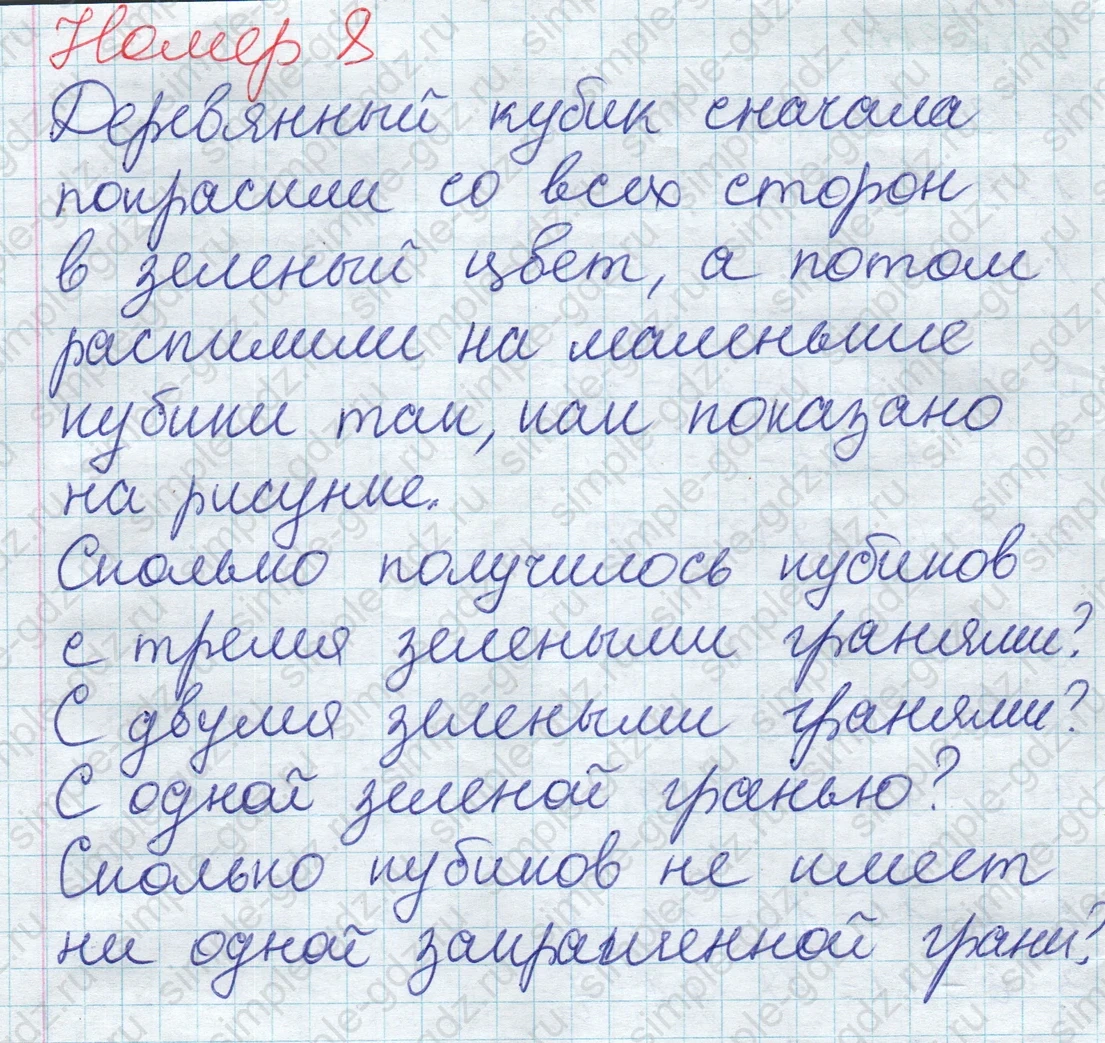 Номер 8
Деревянный кубик сначала
покрасили со всех сторон
в зеленый цвет, а потом
распилили на маленькие
кубики так, как показано
на рисунке.
Сколько получилось кубиков
с тремя зелеными гранями?
С двумя зелеными гранями?
С одной зеленой гранью?
Сколько кубиков не имеет
ни одной закрашенной грани?
simple-gdz.ru